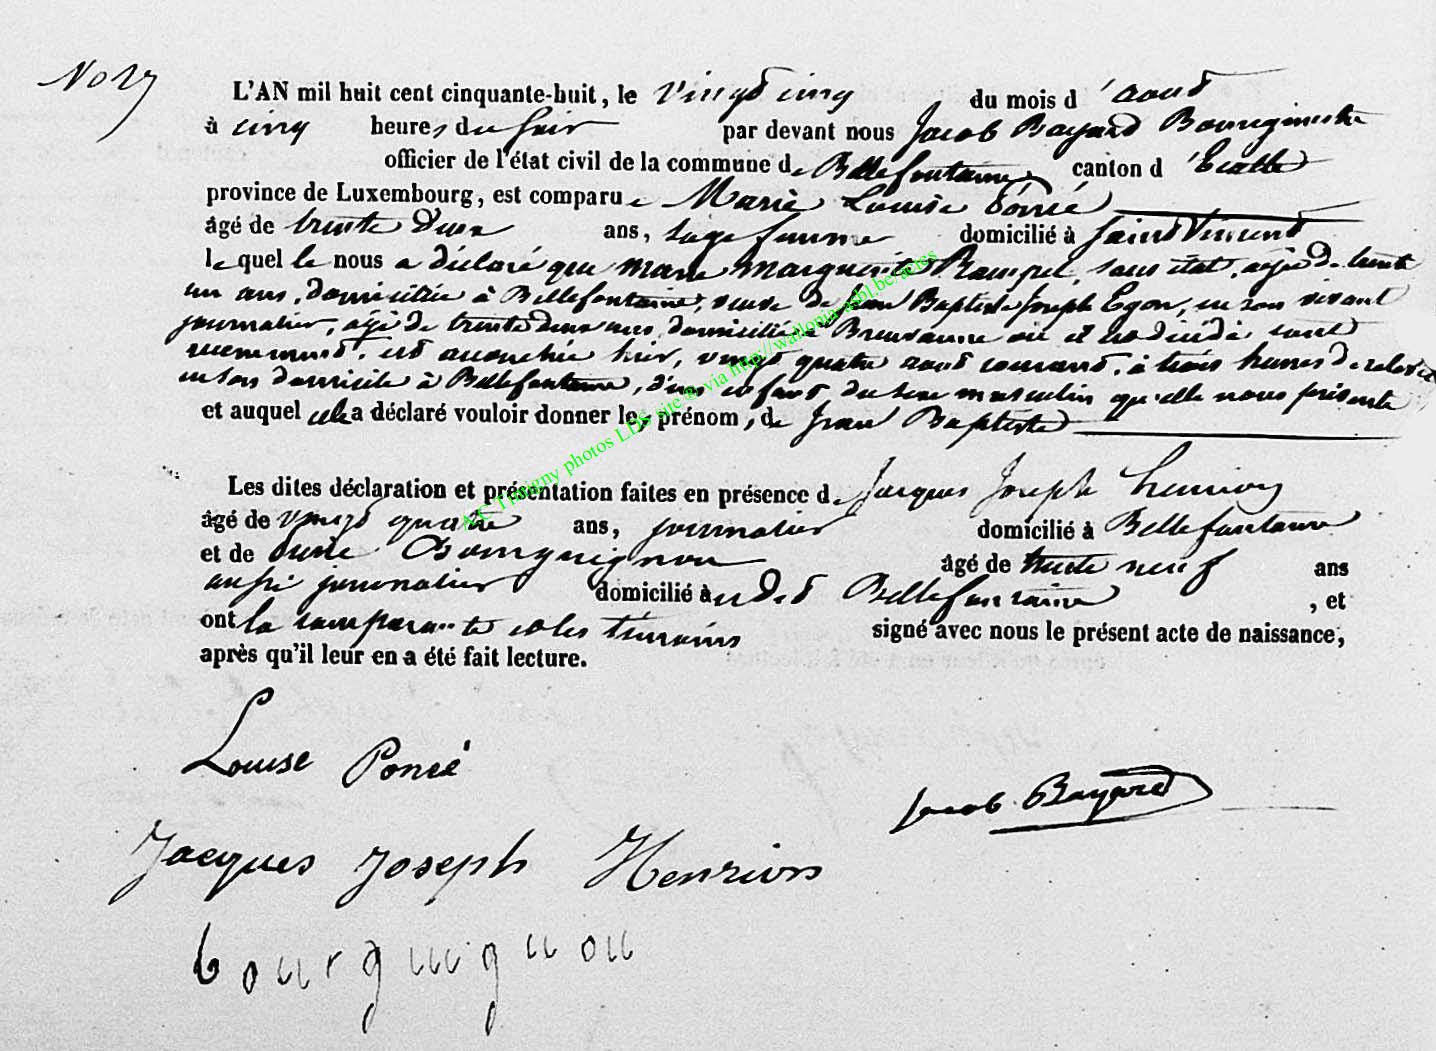 No 27
L'AN mil huit cent cinquante-huit, le vingt cinq du mois d'aout
à cinq heures du soir par devant nous Jacob Bayard Bourgmestre
officier de l'état civil de la commune de Bellefontaine canton d'Etalle
province de Luxembourg, est comparue Marie Louise Poncé
âgé de trente deux ans, sage femme domicilié à Saint Vincent
le quel le nous a déclaré que Marie Marguerite sans état, agée de trente
un ans, domiciliée à Bellefontaine, veuve de Jean Baptiste Joseph Egon, en son vivant
journalier, agé de trente deux ans, domicilié à où il est décédé
est accouchée hier, vingt quatre aout courant, à trois heures de relevée
en son domicile à Bellefontaine, d'un enfant du sexe masculin qu'elle nous présente
et auquel elle a déclaré vouloir donner les prénom, de Jean Baptiste
Les dites déclaration et présentation faites en présence de Jacques Joseph Henrion
âgé de vingt quatre ans, journalier domicilié à Bellefontaine
et de Bourguignon âgé de trente neuf ans
aussi journalier domicilié à udit Bellefontaine, et
ont la comparante et les témoins signé avec nous le présent acte de naissance,
après qu'il leur en a été fait lecture.
Louise Poncé
Jacob Bayard
Jacques Joseph Henrion
bourguignon
A.C Tintigny photos LDS site & via http://wallonia-asbl.be/actes